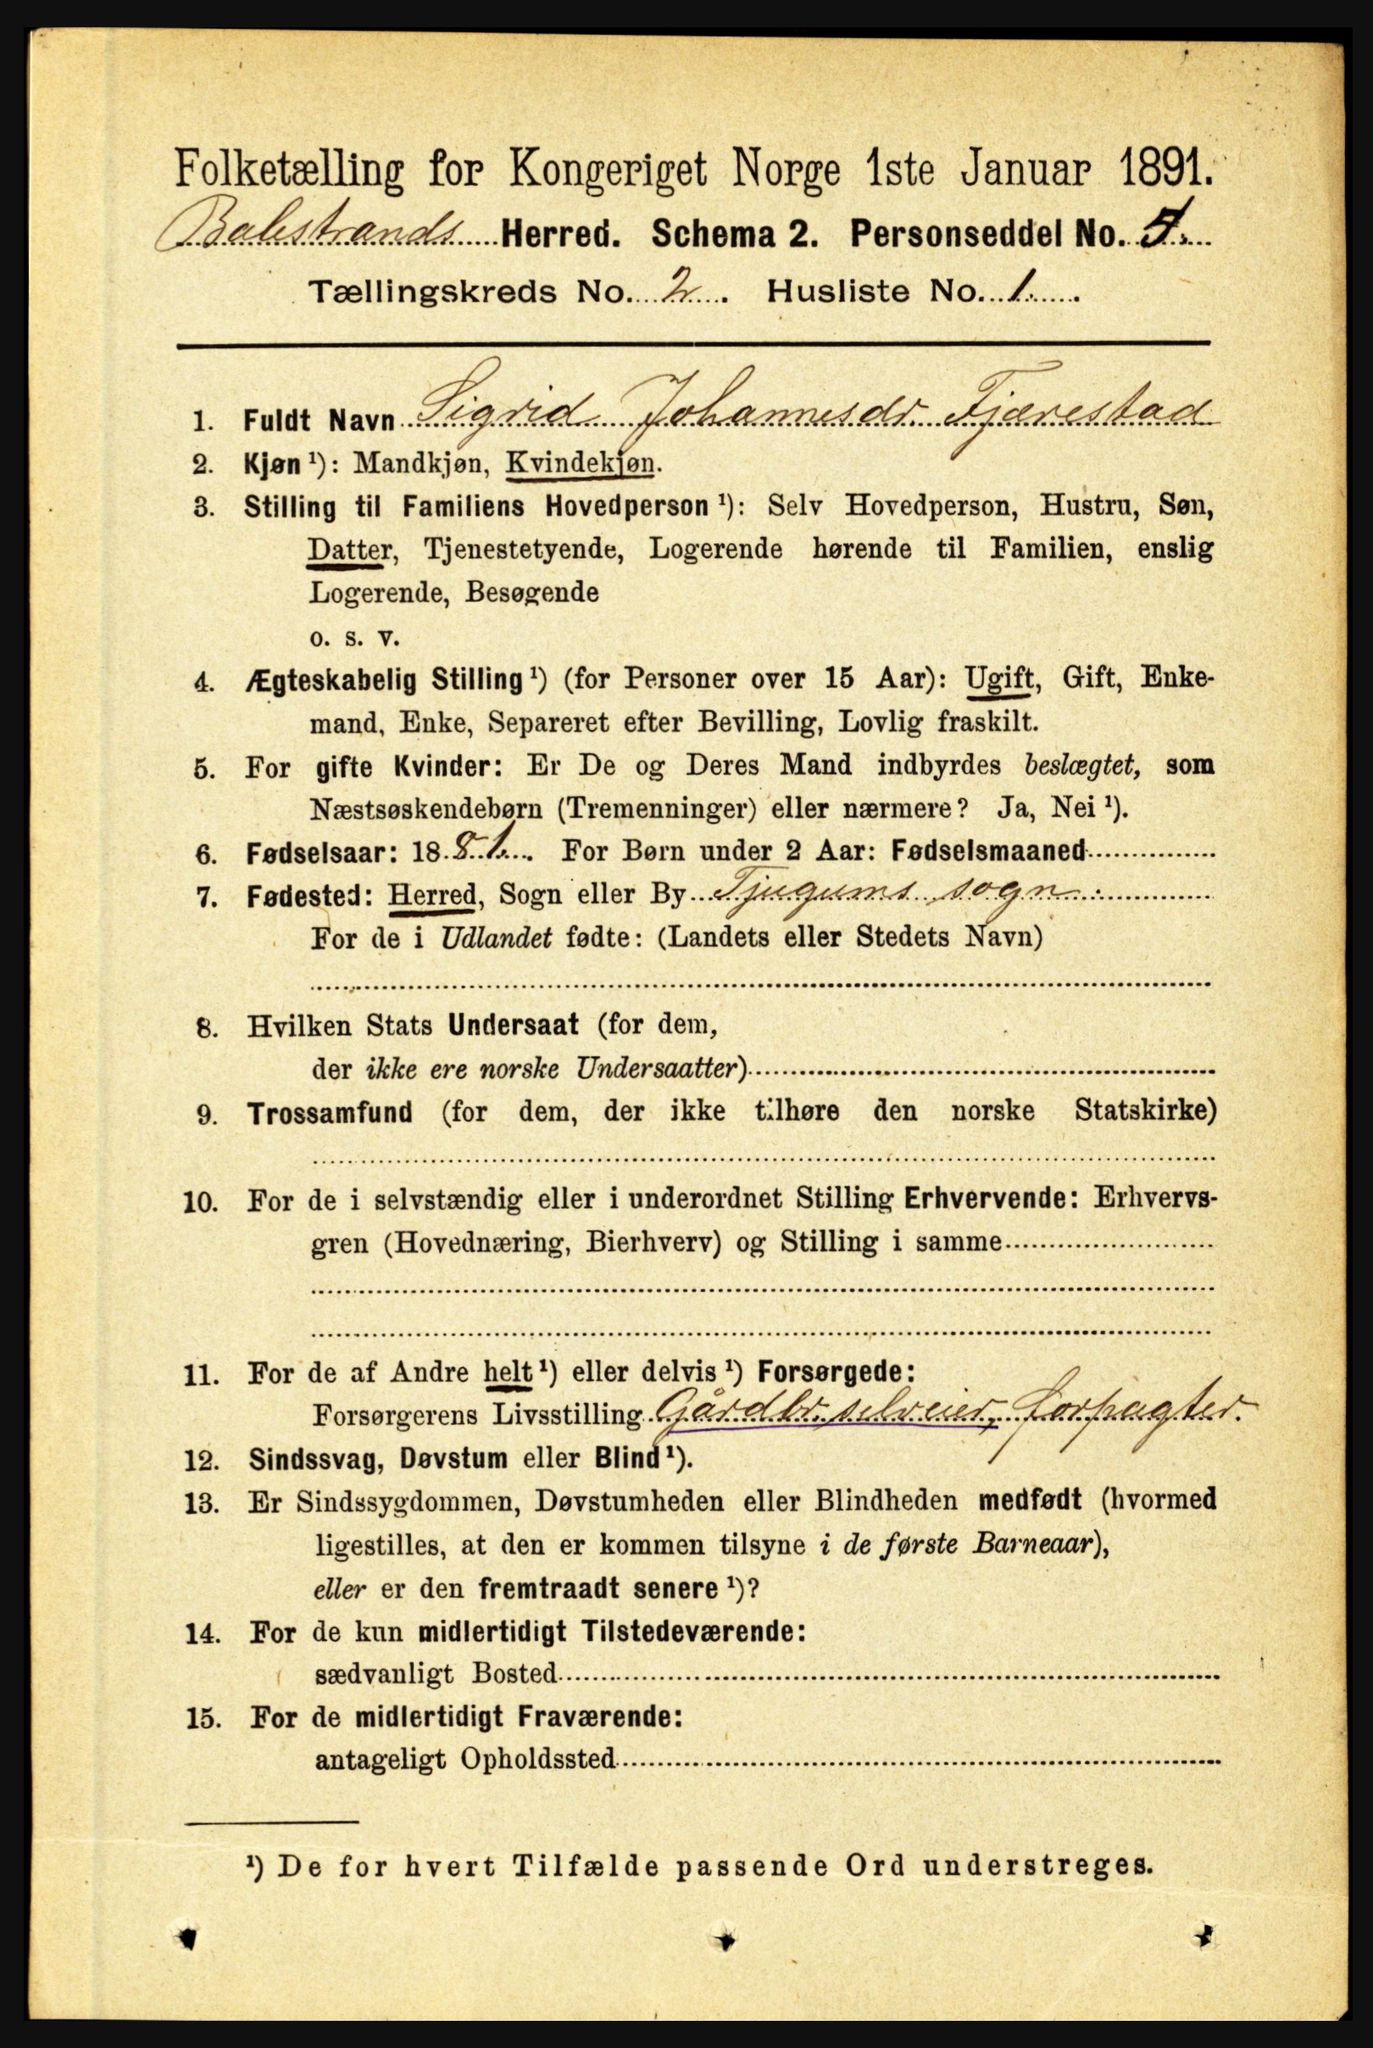 Folketælling for Kongeriget Norge 1ste Januar 1891.
Balestrands Herred. Schema 2. Personseddel No. 5.
Tællingskreds No. 2. Husliste No. 1.
1. Fuldt Navn Sigrid Johannesdr. Fjærestad
2. Kjøn ¹): Mandkjøn, Kvindekjøn.
3. Stilling til Familiens Hovedperson ¹): Selv Hovedperson, Hustru, Søn,
Datter, Tjenestetyende, Logerende hørende til Familien, enslig
Logerende, Besøgende
o. s. v.
4. Ægteskabelig Stilling ¹) (for Personer over 15 Aar): Ugift, Gift, Enke-
mand, Enke, Separeret efter Bevilling, Lovlig fraskilt.
5. For gifte Kvinder: Er De og Deres Mand indbyrdes beslægtet, som
Næstsøskendebørn (Tremenninger) eller nærmere? Ja, Nei ¹).
6. Fødselsaar: 1881. For Børn under 2 Aar: Fødselsmaaned
7. Fødested: Herred, Sogn eller By Tjugums sogn.
For de i Udlandet fødte: (Landets eller Stedets Navn)
8. Hvilken Stats Undersaat (for dem,
der ikke ere norske Undersaatter)
9. Trossamfund (for dem, der ikke tilhøre den norske Statskirke)
10. For de i selvstændig eller i underordnet Stilling Erhvervende: Erhvervs-
gren (Hovednæring, Bierhverv) og Stilling i samme
11. For de af Andre helt ¹) eller delvis ¹) Forsørgede:
Forsørgerens Livsstilling Gårdbr. selveier, forpagter.
12. Sindssvag, Døvstum eller Blind ¹).
13. Er Sindssygdommen, Døvstumheden eller Blindheden medfødt (hvormed
ligestilles, at den er kommen tilsyne i de første Barneaar),
eller er den fremtraadt senere ¹)?
14. For de kun midlertidigt Tilstedeværende:
sædvanligt Bosted
15. For de midlertidigt Fraværende:
antageligt Opholdssted
¹) De for hvert Tilfælde passende Ord understreges.